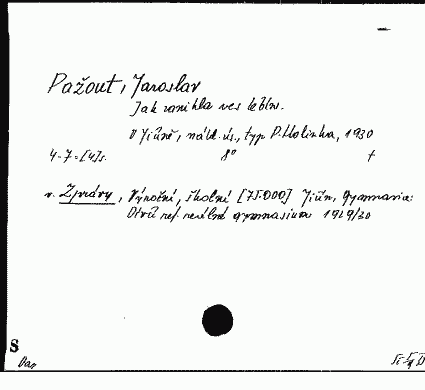 Pažout, Jaroslav
Jak vznikla ves
V Jičíně, nákl. ús., typ P. Holinka, 1930
4-7=[4]s. 8° +
v. Zprávy, Výroční, školní [75.000] Jičín, Gymnasia:
Otvů ref. reálné gymnasium 1929/30
S